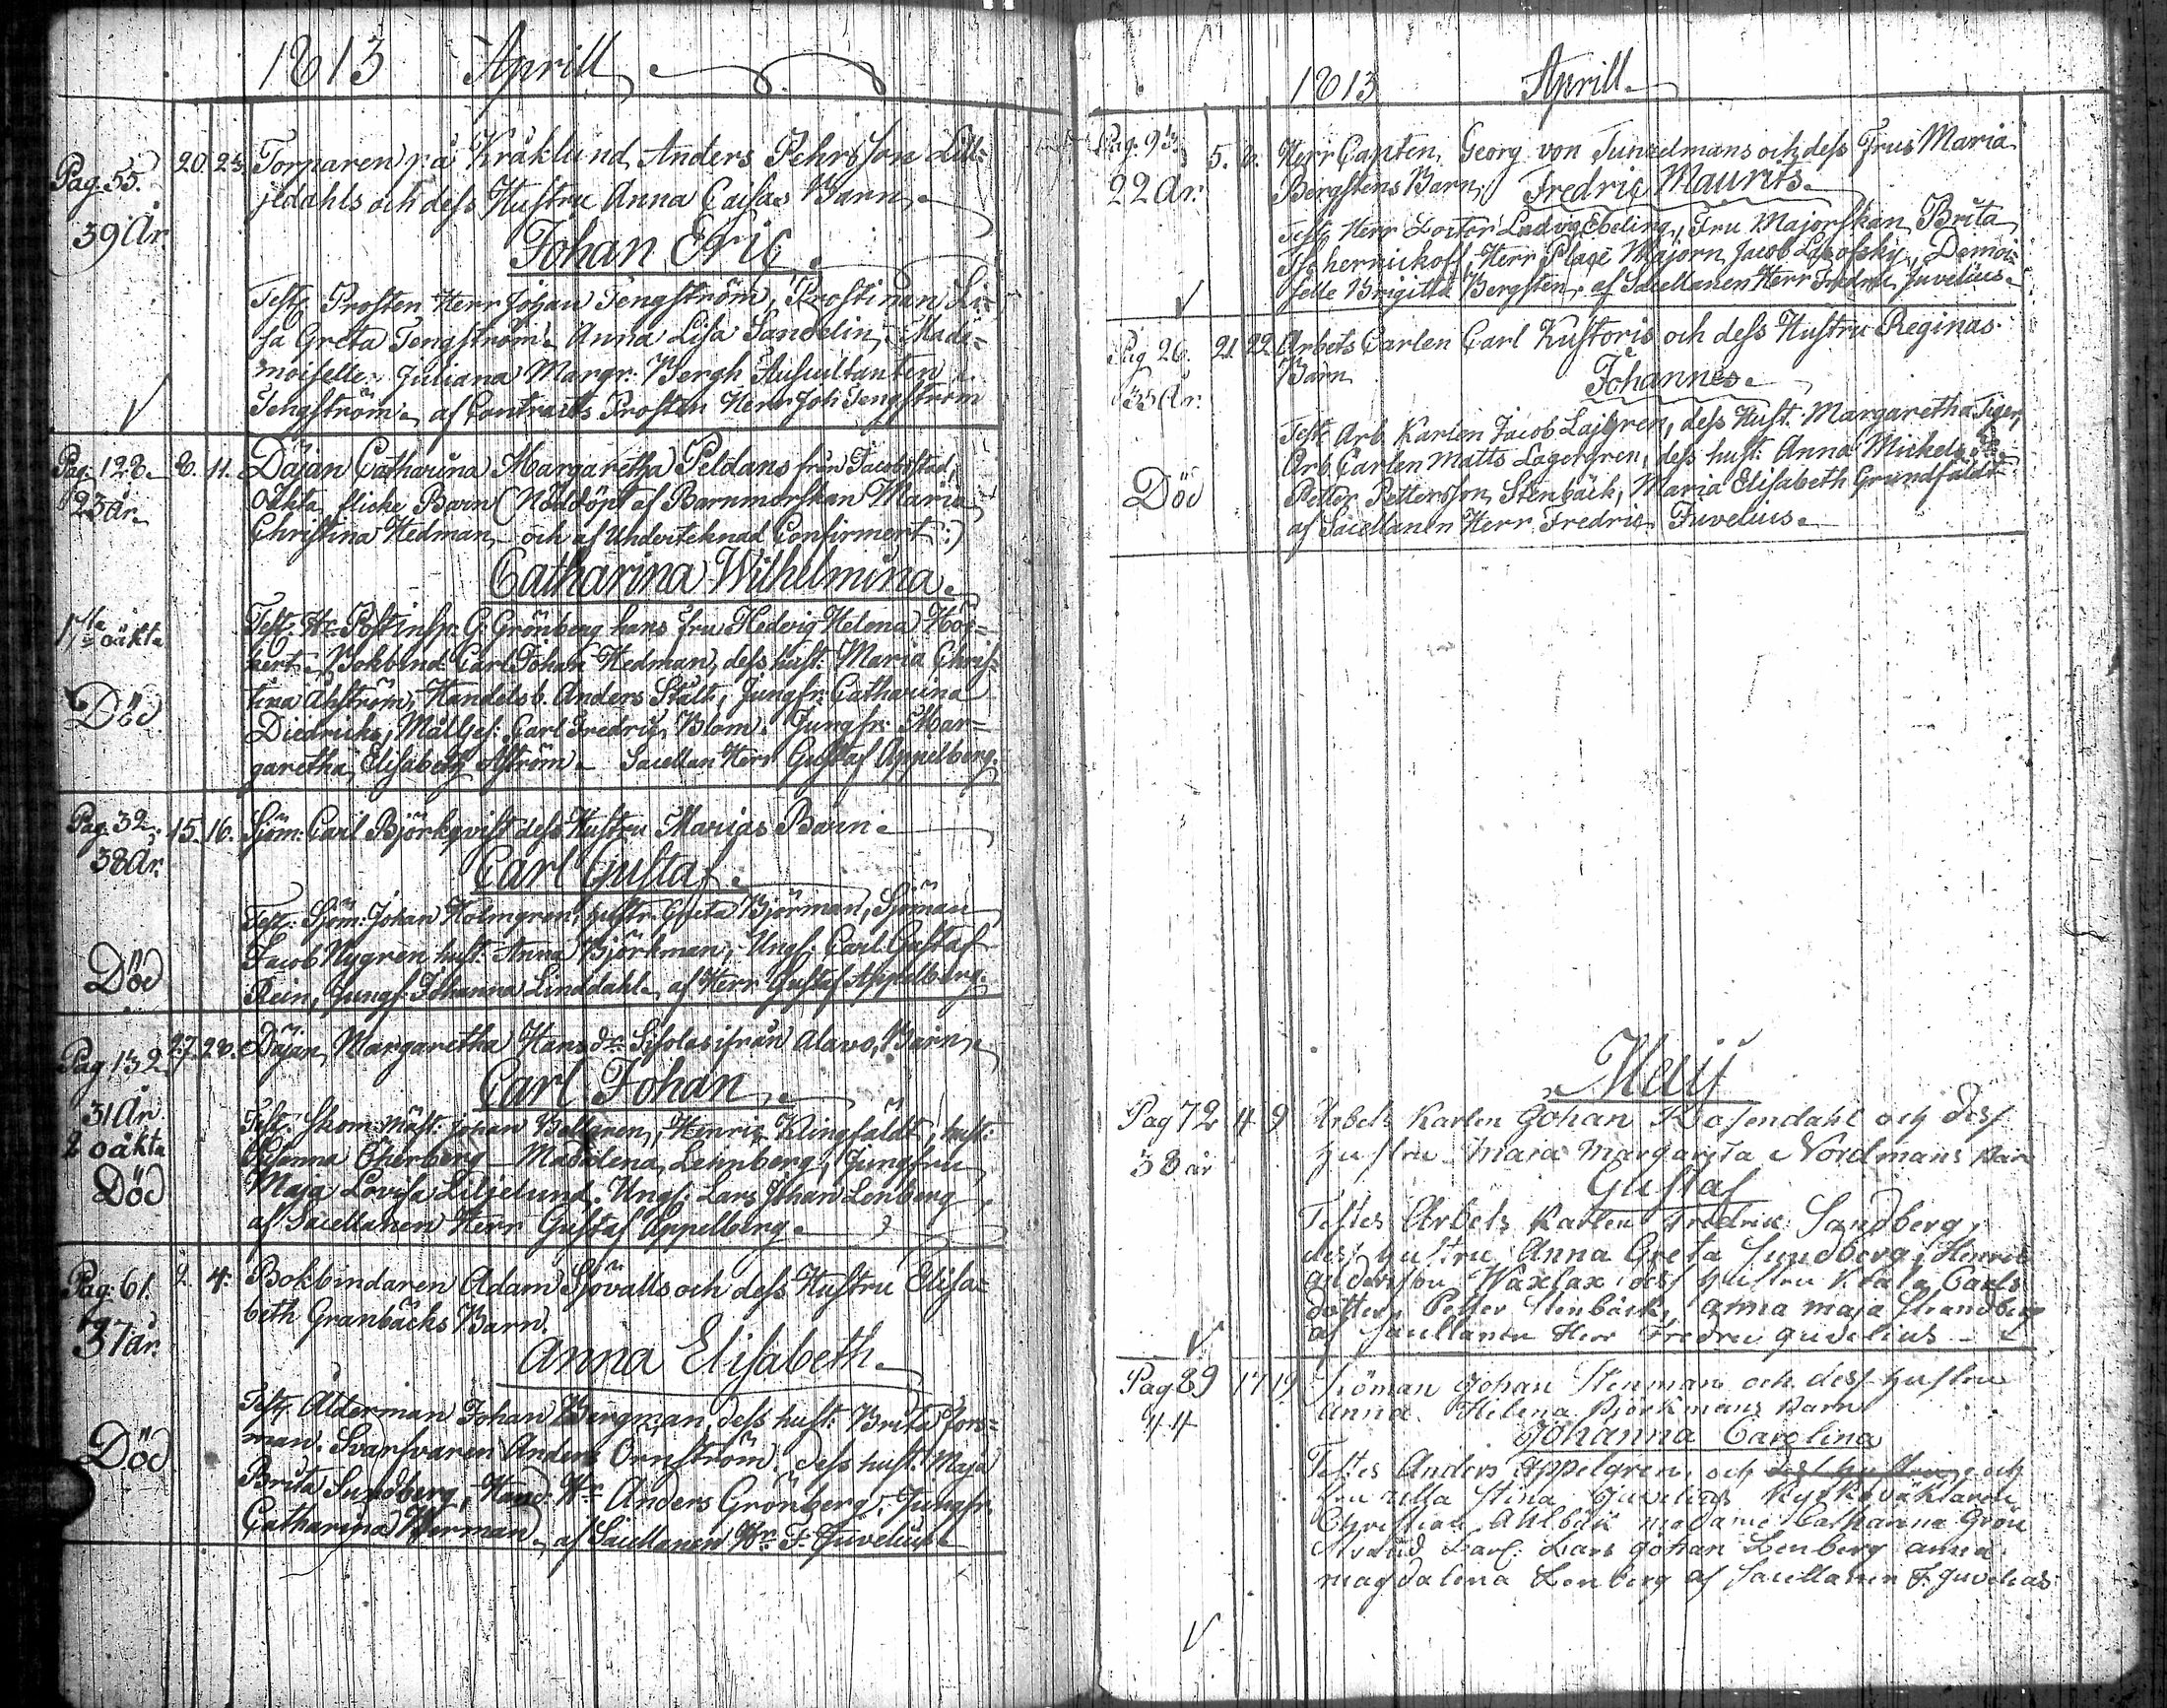 1813 Aprill
Pag. 55. 20. 23. Torparen på Kråklund Anders Pehrsson Lil=
39 År jedahls och dess Hustru Anna Caisas Barn
Johan Eric
Test. Prosten Herr Johan Tengström, Prostinnan Li=
sa Greta Tengström, Anna Lisa Sandelin, Made=
moiselle Juliana Margr: Bergh Auscultanten
Tengström af Contracts Prosten Herr Joh Tengström
Pag. 128. 8. 11. Däjan Catharina Margaretha Peldans från Jacobstad,
23 År. Oäkta flicke Barn (Nöddöpt af Barnmorskan Maria
Christina Hedman, och af Underteknad Confirmert:)
Catharina Wilhelmina
1sta oäkta Test. Hr. Postinsp. G. Grönberg hans fru Hedvig Helena Hö=
kert. Bokbind. Carl Johan Hedman, dess hust: Maria Chris=
Död tina Åhström, Handelsb. Anders Stålt, Jungfr: Catharina
Diedrichs, Målges: Carl Fredric Blom. Jungfr: Mar=
garetha Elisabeth Åström. Sacellan Herr Gustaf Appelberg.
Pag. 32. 15. 16. Sjöm: Carl Björkqvist dess Hustru Marias Barn
38 År. Carl Gustaf
Test: Sjöm: Johan Holmgren, hustr. Greta Björman, Sjöman
Död Jacob Nygren hust: Anna Björkman, Ungs: Carl Gustaf
Rein, Jungf: Johanna Linddahl af Herr Gustaf Appelberg.
Pag 132 27. 28. Däjan Margaretha Hans dr ifrån Alavo, Barn
31 År Carl Johan
2 oäkta Test. Skom: mäst: johan Hinric Klingfäldt, hust:
Susanna Madalena Lennberg, Jungfru
Död Maja Lovisa Liljelund. Ungs: Lars Johan Lenberg
af Sacellanen Herr Gustaf Appelberg.
Pag: 61 2 4: Bokbindaren Adam Sjövalls och dess Hustru Elisa=
37 år. beth Granbäcks Barn.
Anna Elisabeth
Test. Ålderman Johan Bergman, dess hust: Brita Fors=
Död man. Svarfvaren Anders Örnström, dess hust: Maja
Brita Sundberg, Hand. Hr Anders Grönberg, Jungfr.
Catharina Werman af Sacellanen Hr F. Juvelius
1813 Aprill
Pag. 93 5. 8. Herr Capten Georg von Tunzelmans och dess Frus Maria
22 År. Bergstens Barn, Fredric Maurits.
Test, Herr Docter Ludvig Ebeling, Fru Majorskan Brita
Tschernickoff, Herr Place Majorn Jacob Demoi=
selle Brigitta Bergsten, af Sacellanen Herr Fredric Juvelius
Pag 26. 21. 22 Arbets Carlen Carl Kustoris och dess Hustru Reginas
33 År. Barn Johannes
Test. Arb Karlen Jacob Lajgren, dess Hust: Margaretha Tiger,
Arb. Carlen Matts Lagergren, dess hust: Anna Michels dr
Död Petter Pettersson Stenbäck, Maria Elisabeth Grundfäldt
af Sacellanen Herr Fredric Juvelius
Meij
Pag 72 4 9 Arbets Karlen Johan Rosendahl och dess
38 år hustru Maria Margareta Nordmans Barn
Gustaf
Testes Arbets Karlen Fredric Sandberg,
dess hustru Anna Greta Sundberg, Henric
Andersson Waxlax dess hustru Carls
dotter, Petter Stenbäck, Anna Maja Strandberg
af Sacellanen Herr Fredric Juvelius
Pag 89 17 19 Sjöman Johan Stenman och dess hustru
44 Anna Helena Björkmans Barn
Johanna Carolina
Testes Anders Appelgren, och dess hustru och
fru Ulla Stina Juvelius Kyrkoväktaren
Christian Ahlbäck madame Catharina Grön
strand Lars Johan Lenberg anna
magdalena Lenberg af Sacellanen F. Juvelius